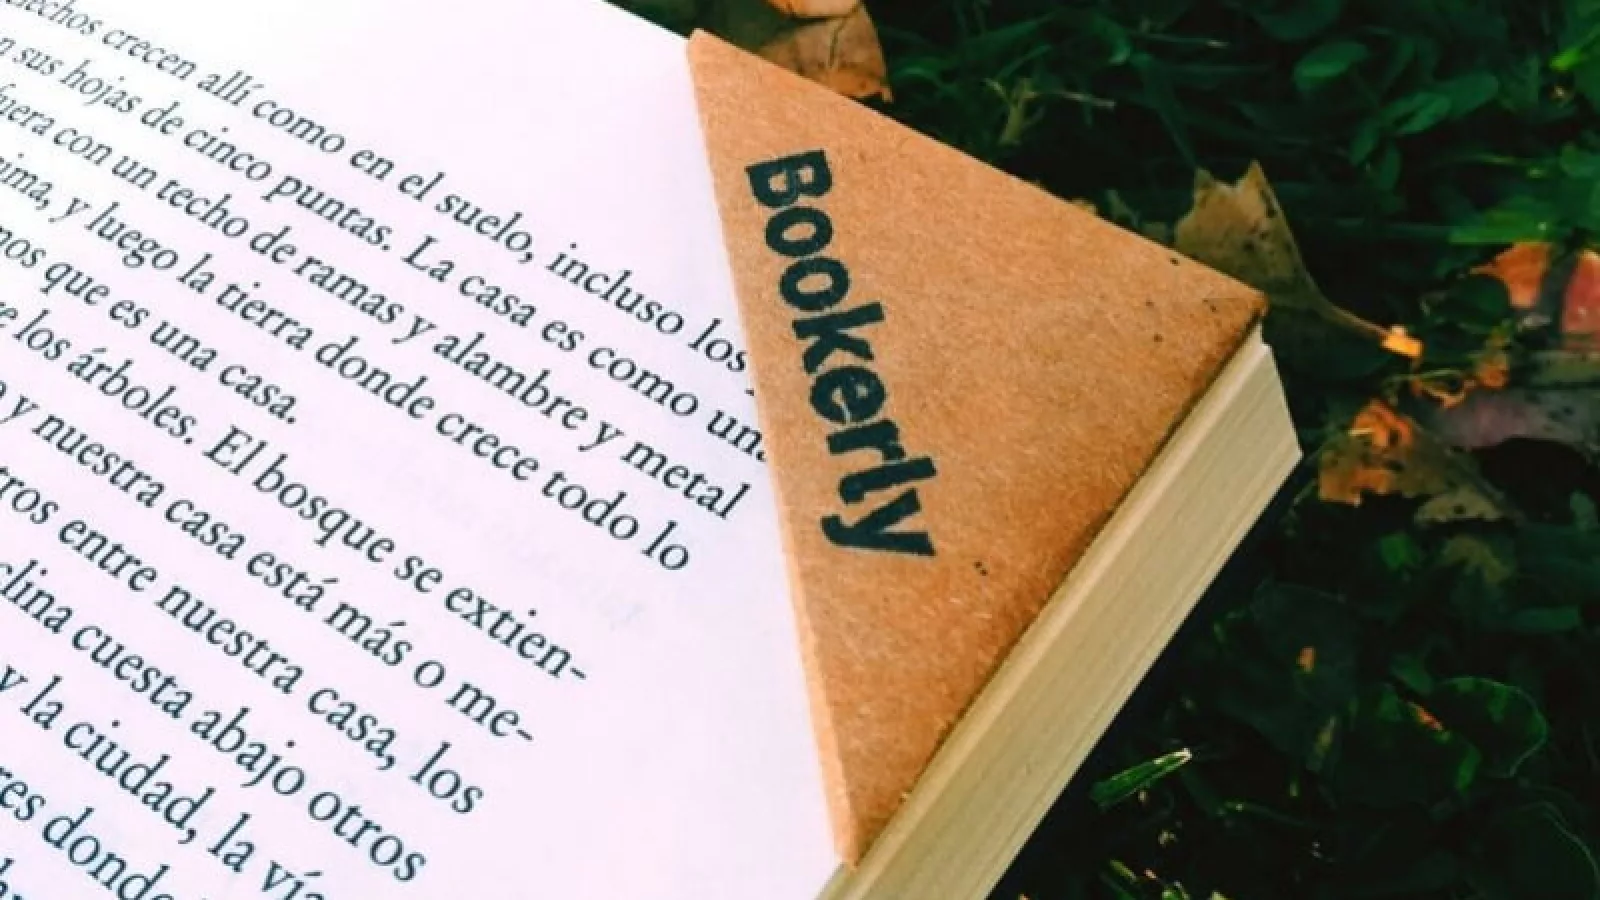 crecen allí como en el suelo, incluso los
sus hojas de cinco puntas. La casa es como una
fuera con un techo de ramas y alambre y metal
y luego la tierra donde crece todo lo
que es una casa.
los árboles. El bosque se extien-
y nuestra casa está más o me-
entre nuestra casa, los
cuesta abajo otros
y la ciudad, la vía
donde
Bookerly